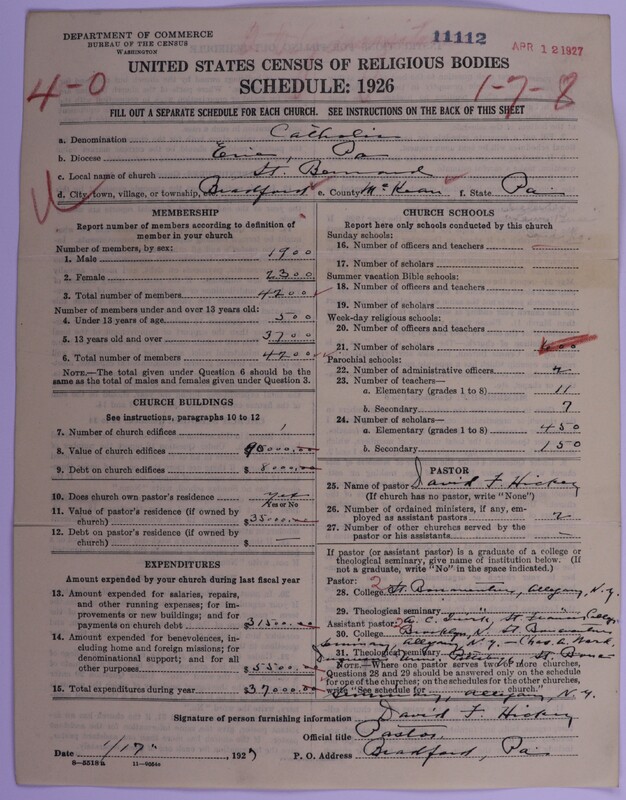 DEPARTMENT OF COMMERCE
BUREAU OF THE CENSUS
WASHINGTON
11112
APR 12 1927
UNITED STATES CENSUS OF RELIGIOUS BODIES
SCHEDULE: 1926
4-0
1-7-8
FILL OUT A SEPARATE SCHEDULE FOR EACH CHURCH. SEE INSTRUCTIONS ON THE BACK OF THIS SHEET
a. Denomination Catholic
b. Diocese Erie, Pa
c. Local name of church St. Bernard
d. City, town, village, or township, Bradford e. County McKean f. State Pa
MEMBERSHIP
Report number of members according to definition of
member in your church
Number of members, by sex:
1. Male 1900
2. Female 2300
3. Total number of members 4200
Number of members under and over 13 years old:
4. Under 13 years of age 500
5. 13 years old and over 3700
6. Total number of members 4200
NOTE.—The total given under Question 6 should be the
same as the total of males and females given under Question 3.
CHURCH BUILDINGS
See instructions, paragraphs 10 to 12
7. Number of church edifices 1
8. Value of church edifices $
9. Debt on church edifices $ 8000.00
10. Does church own pastor's residence yes
Yes or No
11. Value of pastor's residence (if owned by
church) $ 35000.00
12. Debt on pastor's residence (if owned by
church) $ —
EXPENDITURES
Amount expended by your church during last fiscal year
13. Amount expended for salaries, repairs,
and other running expenses; for im-
provements or new buildings; and for
payments on church debt $ 31500.00
14. Amount expended for benevolences, in-
cluding home and foreign missions; for
denominational support; and for all
other purposes $ 5500.00
15. Total expenditures during year $ 37000.00
CHURCH SCHOOLS
Report here only schools conducted by this church
Sunday schools:
16. Number of officers and teachers
17. Number of scholars
Summer vacation Bible schools:
18. Number of officers and teachers
19. Number of scholars
Week-day religious schools:
20. Number of officers and teachers
21. Number of scholars 600
Parochial schools:
22. Number of administrative officers
23. Number of teachers—
a. Elementary (grades 1 to 8) 11
b. Secondary 7
24. Number of scholars—
a. Elementary (grades 1 to 8) 450
b. Secondary 150
PASTOR
25. Name of pastor David F. Hickey
(If church has no pastor, write "None")
26. Number of ordained ministers, if any, em-
ployed as assistant pastors 2
27. Number of other churches served by the
pastor or his assistants —
If pastor (or assistant pastor) is a graduate of a college or
theological seminary, give name of institution below. (If
not a graduate, write "No" in the space indicated.)
Pastor: 2
28. College St. Bonaventure, Allegany, N.Y.
29. Theological seminary " "
Assistant pastor: St. Francis College
30. College Brooklyn, N. St. Bonaventure
Seminary Allegany N.Y.
31. Theological seminary St. Bona
NOTE.—Where one pastor serves two or more churches,
Questions 28 and 29 should be answered only on the schedule
for one of the churches; on the schedules for the other churches,
write "See schedule for church."
Seminary, Allegany N.Y.
Signature of person furnishing information David F. Hickey
Official title Pastor
Date 1/17", 1927 P. O. Address Bradford, Pa
8—5518a 11—9654